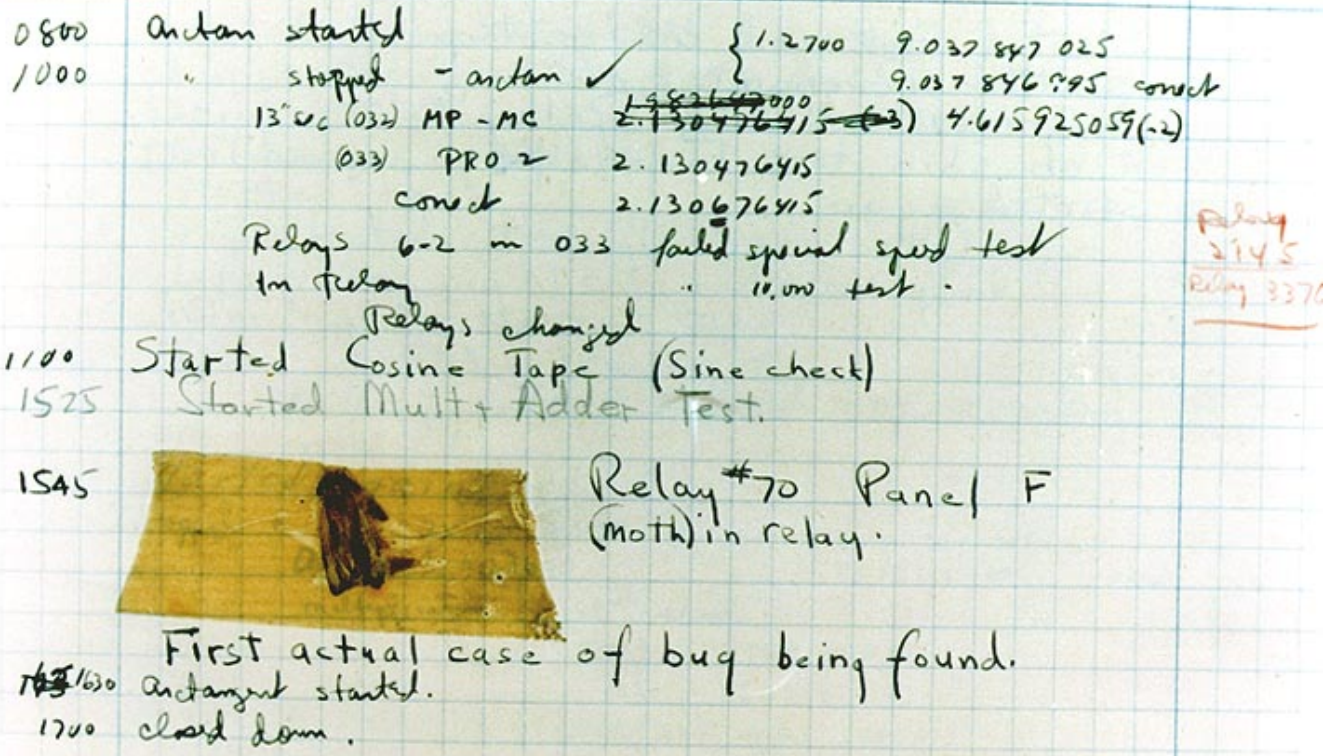 0800 antan started { 1.2700 9.037 847 025
1000 " stopped - antan ✓ 9.037 846 795 conect
13" uc (032) MP - MC 2.130476415 (-3) 4.615925059(-2)
(033) PRO 2 2.130476415
conect 2.130676415
Relays 6-2 in 033 failed special speed test
In Relay " 10,000 test .
Relays changed
Relay
2145
Relay 3370
1100 Started Cosine Tape (Sine check)
1525 Started Mult + Adder Test.
1545 Relay #70 Panel F
(moth) in relay.
First actual case of bug being found.
1630 arctangent started.
1700 closed down.